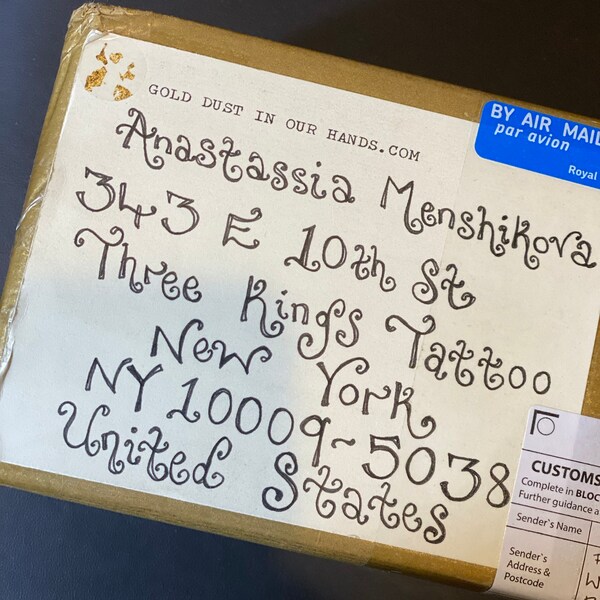 GOLD DUST IN OUR HANDS.COM
BY AIR MAIL
par avion
Royal
Anastassia Menshikova
343 E 10th St
Three Kings Tattoo
New York
NY 10009-5038
United States
CUSTOMS
Complete in BLOC
Further guidance a
Sender's Name
Sender's
Address &
Postcode